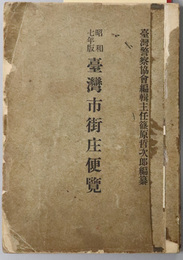 臺灣警察協會編輯主任篠原哲次郎編纂
昭和
七年版
臺灣市街庄便覽